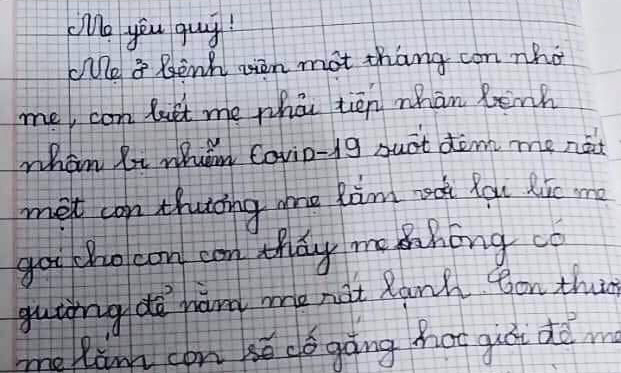 Mẹ yêu quý!
Mẹ ở bệnh viện một tháng con nhớ
mẹ, con biết mẹ phải tiếp nhận bệnh
nhân bị nhiễm Covid-19 suốt đêm mẹ nất
mệt con thương mẹ lắm với lại lúc mẹ
gọi cho con con thấy mẹ không có
giường để nằm mẹ nất lạnh. Con thươn
mẹ lắm con sẽ cố gắng học giỏi để mẹ